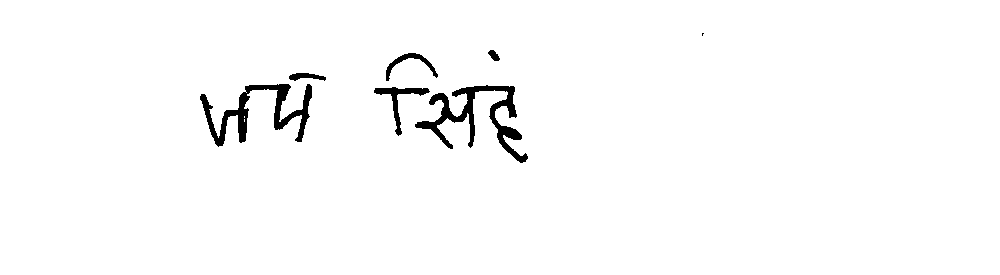 जय सिहं